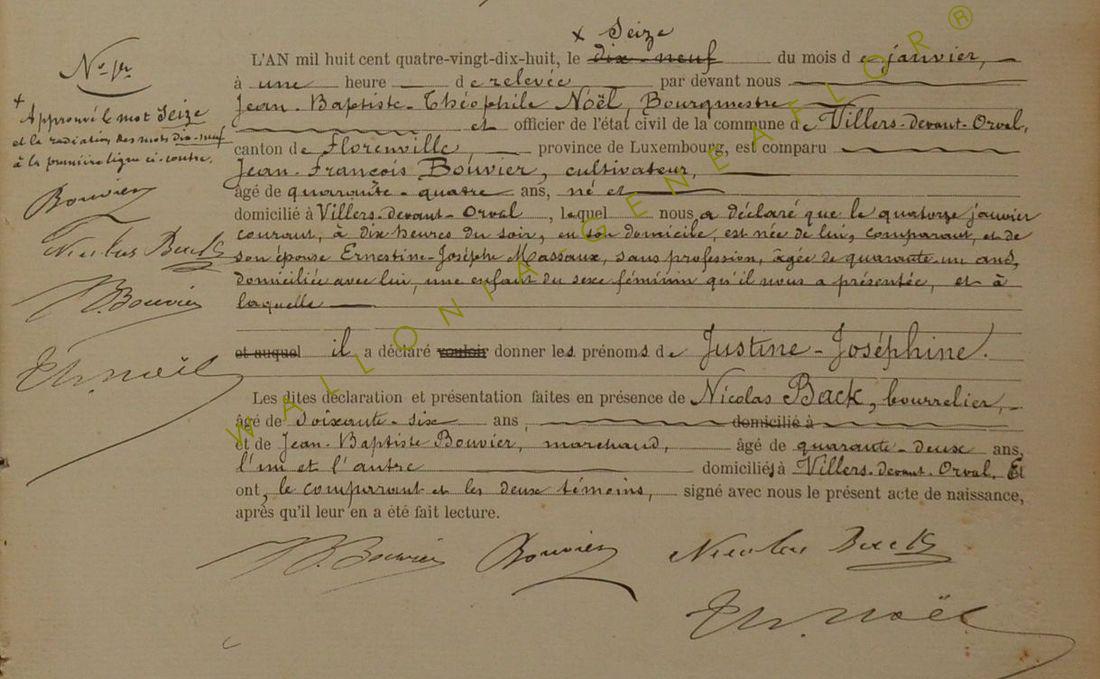 N° 1er
× Approuvé le mot Seize
et la radiation des mots dix-neuf
à la première ligne ci-contre.
Bouvier
Nicolas Back
JB Bouvier
Th. Noël
× Seize
L'AN mil huit cent quatre-vingt-dix-huit, le dix-neuf du mois de janvier,
à une heure de relevée par devant nous
Jean-Baptiste-Théophile Noël, Bourgmestre
et officier de l'état civil de la commune de Villers-devant-Orval,
canton de Florenville, province de Luxembourg, est comparu
Jean-François Bouvier, cultivateur,
âgé de quarante-quatre ans, né et
domicilié à Villers-devant-Orval, lequel nous a déclaré que le quatorze janvier
courant, à dix heures du soir, en son domicile, est née de lui, comparant, et de
son épouse Ernestine-Josèphe Massaux, sans profession, âgée de quarante-un ans,
domiciliée avec lui, une enfant du sexe féminin qu'il nous a présentée, et à
laquelle
et auquel il a déclaré vouloir donner les prénoms de Justine-Joséphine.
Les dites déclaration et présentation faites en présence de Nicolas Back, bourrelier,
âgé de soixante-six ans, domicilié à
et de Jean-Baptiste Bouvier, marchand, âgé de quarante-deux ans,
l'un et l'autre domiciliés à Villers-devant-Orval. Et
ont, le comparant et les deux témoins, signé avec nous le présent acte de naissance,
après qu'il leur en a été fait lecture.
JB. Bouvier Bouvier Nicolas Back
Th. Noël
WALLONIA-GENEAFLOR®